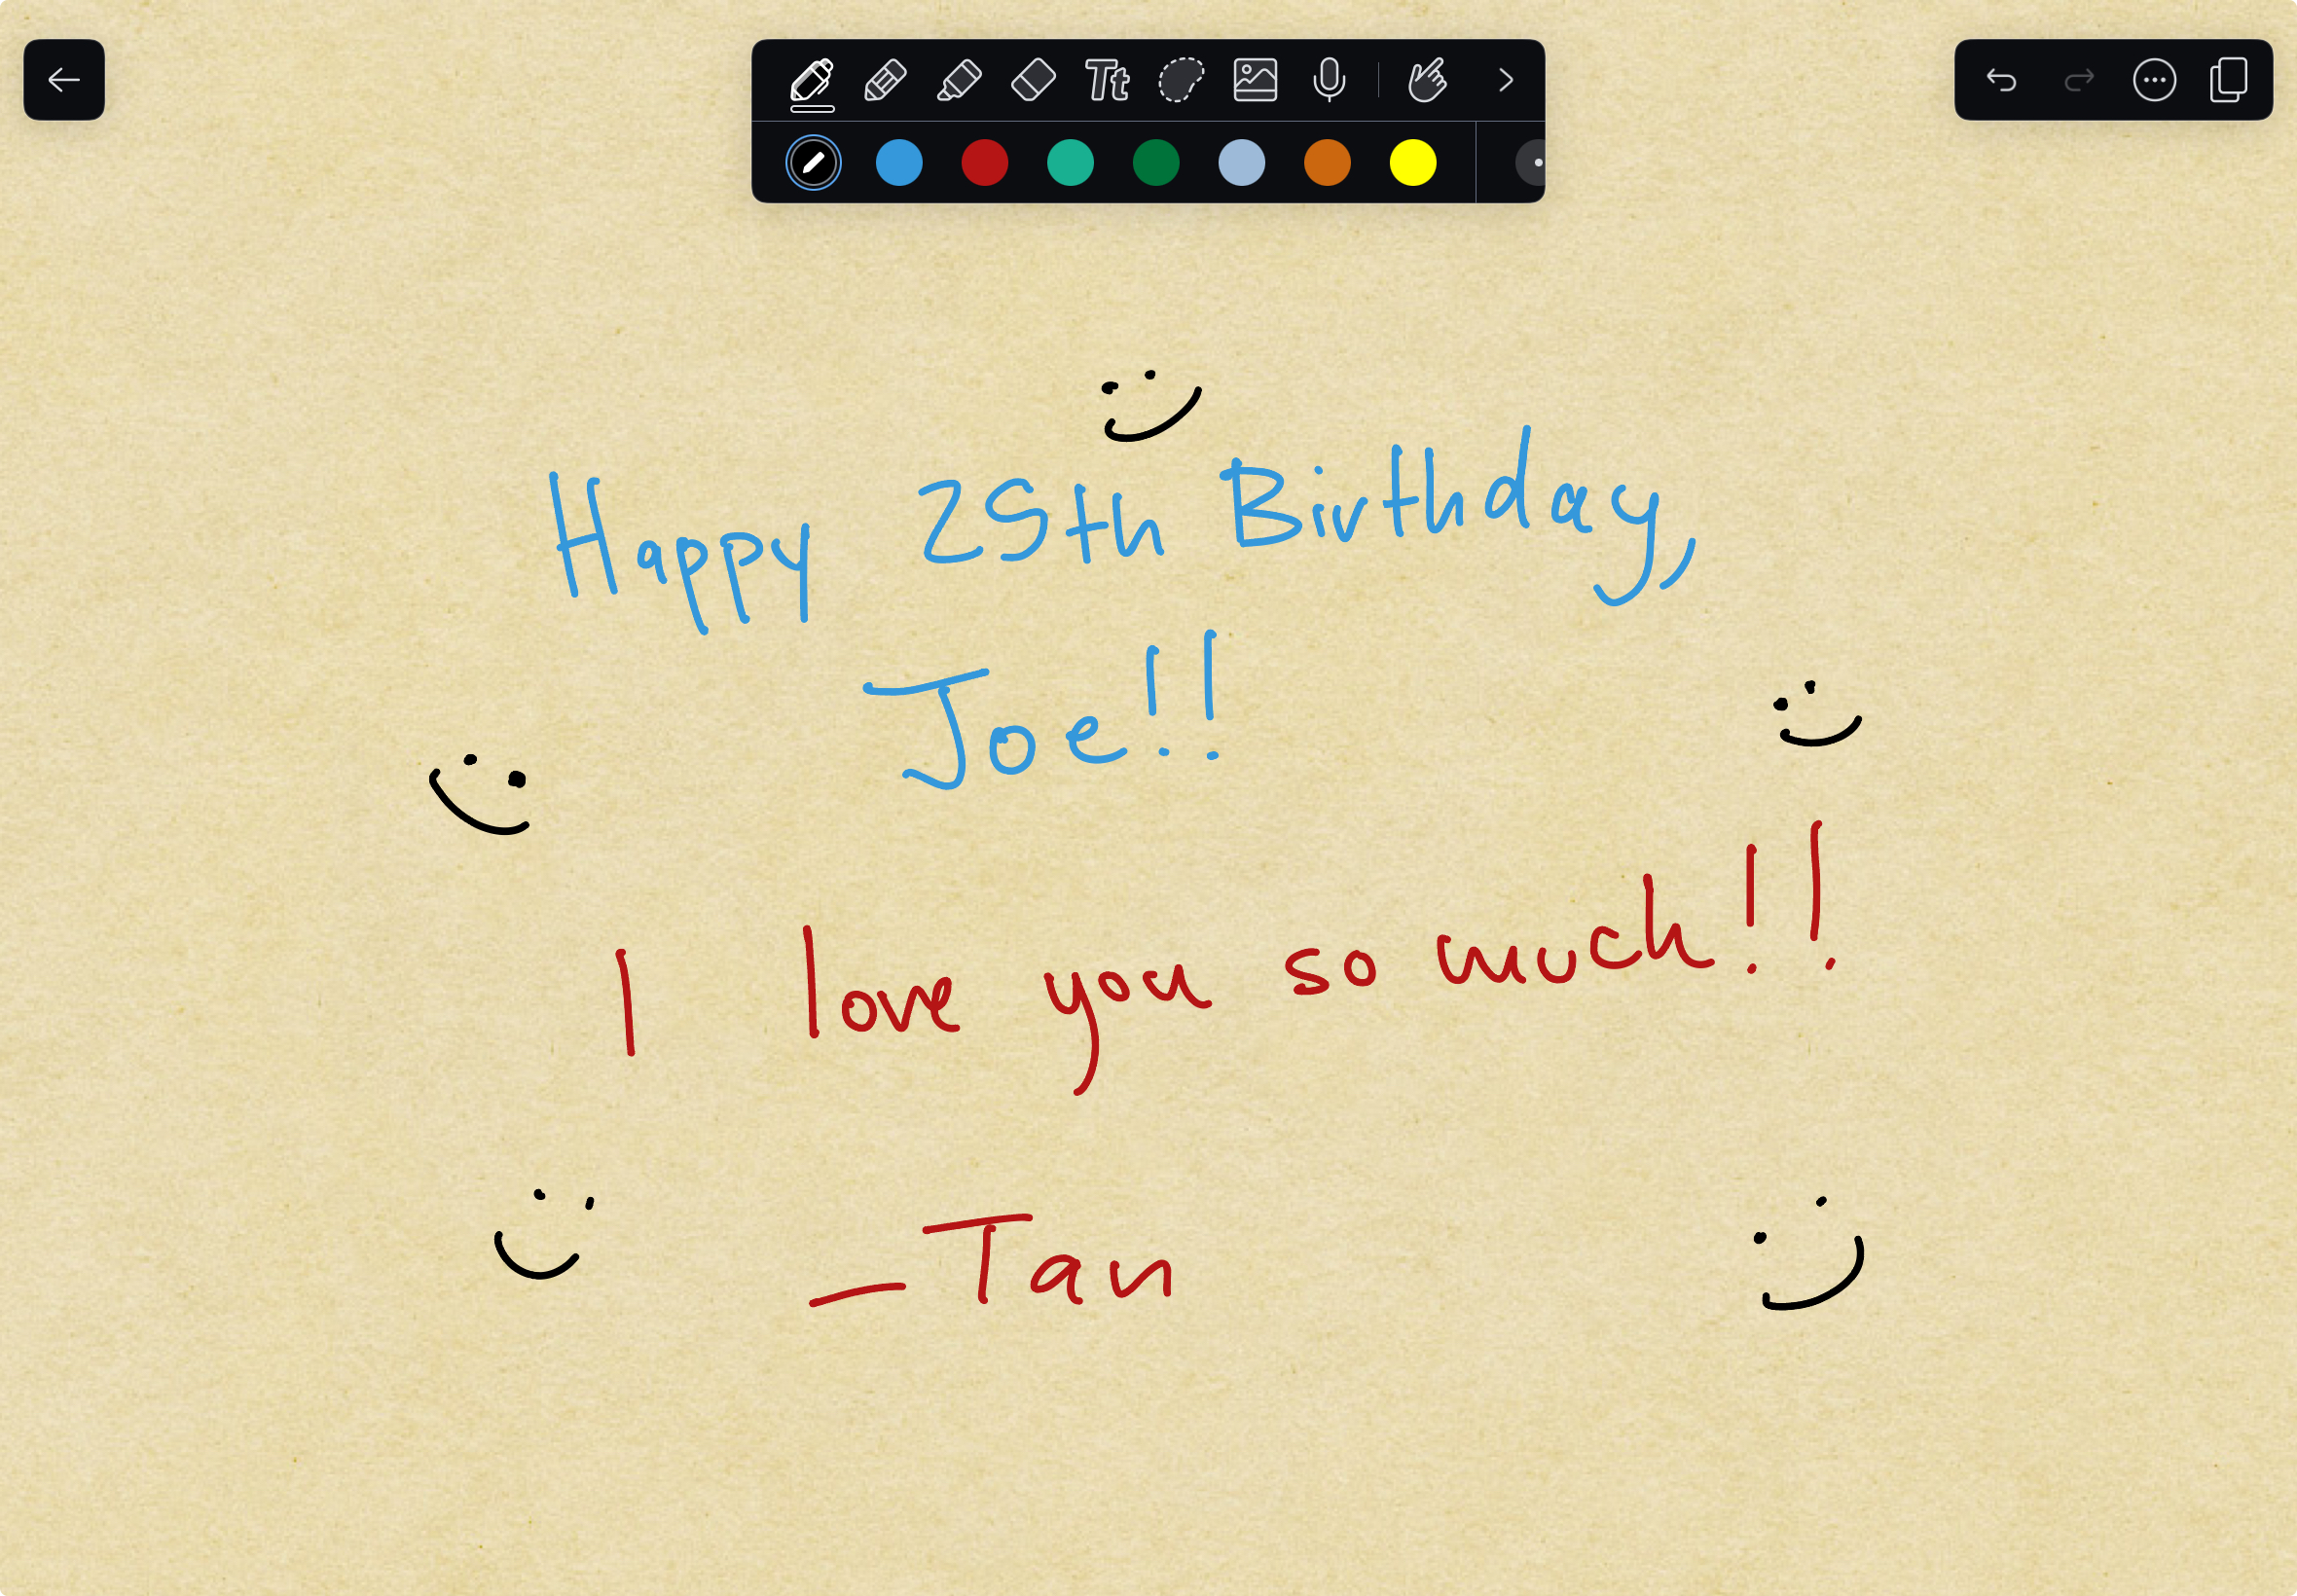 Happy 25th Birthday,
Joe!!
I love you so much!!
-Tan